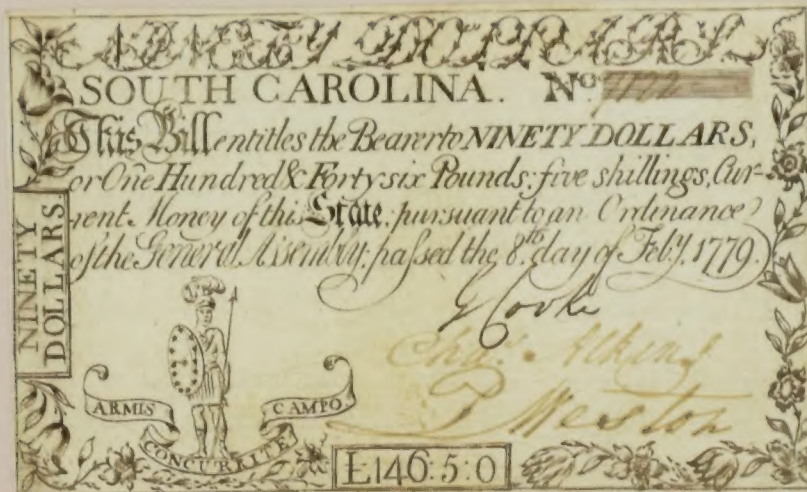 NINETY DOLLARS.
SOUTH CAROLINA. No.
This Bill entitles the Bearer to NINETY DOLLARS,
or One Hundred & Forty six Pounds: five shillings, Cur-
rent Money of this State: pursuant to an Ordinance
of the General Assembly: passed the 8th. day of Feby. 1779.
G Cooke
Chas. Atkins
P Weston
NINETY
DOLLARS
ARMIS
CONCURRITE
CAMPO
£146:5:0